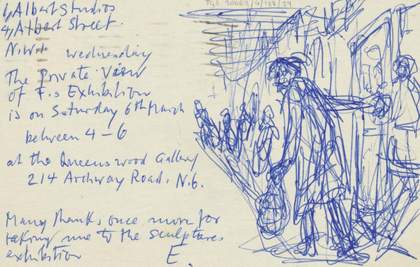 4 Albert Studios
Albert Street.
N.W.
Wednesday
The Private View
of F.s Exhibition
is on Saturday 6th March
between 4-6
at the Queenswood Gallery
214 Archway Road, N.6.
Many thanks once more for
taking me to the sculptures
exhibition
E.